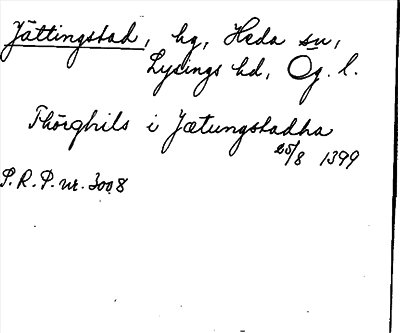 Jättingstad, by, Heda sn,
Lysings hd, Ög. l.
Thörghils i Jætungstadha
25/8 1399
P.R.P. nr. 3008